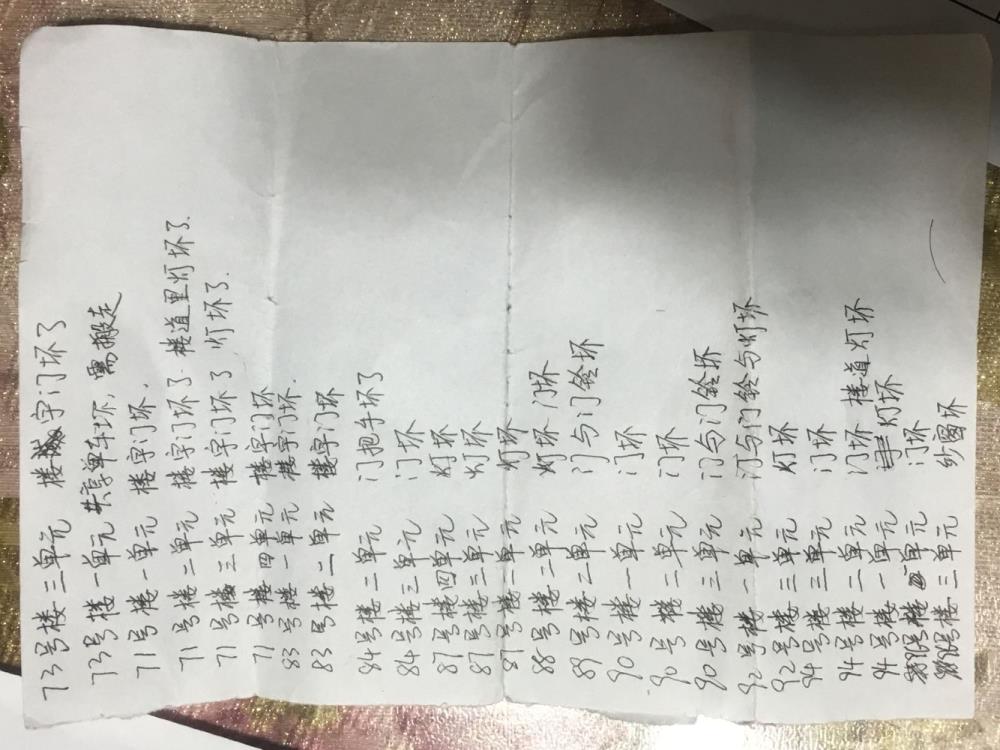 73号楼 三单元 楼宇门坏了
73号楼 一单元 共享单车坏,需搬走
71号楼 一单元 楼宇门坏.
71号楼 二单元 楼字门坏了 楼道里灯坏了.
71号楼 三单元 楼字门坏了 灯坏了.
71号楼 四单元 楼字门坏
83号楼 一单元 楼字门坏.
83号楼 二单元 楼字门坏
84号楼 二单元 门把手坏了
84号楼 三单元 门坏
87号楼 四单元 灯坏
87号楼 三单元 灯坏
87号楼 二单元 灯坏
88号楼 二单元 灯坏 门坏
89号楼 二单元 门与门铃坏
90号楼 一单元 门坏
90号楼 二单元 门坏
90号楼 三单元 门与门铃坏
92号楼 一单元 门与门铃与灯坏
92号楼 三单元 灯坏
94号楼 三单元 门坏
94号楼 二单元 门坏 楼道灯坏
94号楼 一单元 灯坏
号楼 单元 门坏
号楼 三单元 纱窗坏